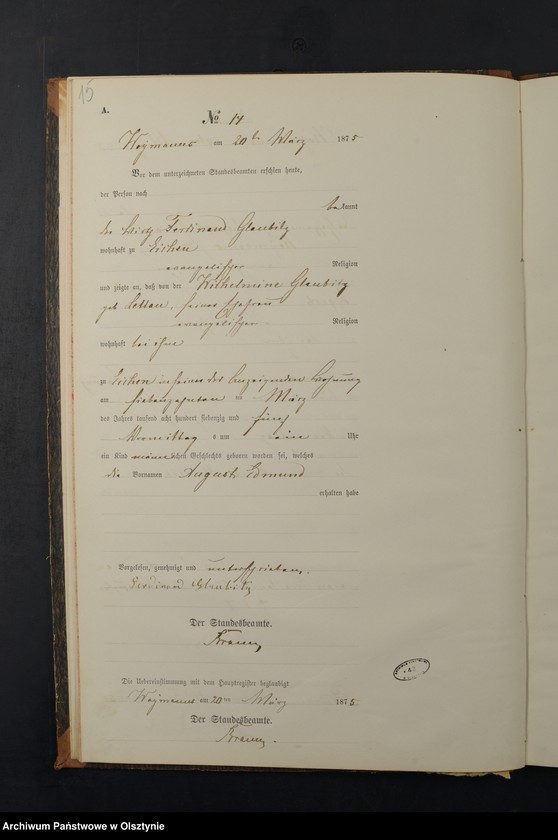 15
A.
№ 14
Woymanns am 20ten März 1875
Vor dem unterzeichneten Standesbeamten erschien heute,
der Person nach
bekannt
der Wirth Ferdinand Glaubitz
wohnhaft zu Eichen
evangelischer Religion
und zeigte an, daß von der Wilhelmine Glaubitz
geb Lettau, seiner Ehefrau
evangelischer Religion
wohnhaft bei ihm
zu Eichen in seiner des Anzeigenden Wohnung
am siebenzehnten ten März
des Jahres tausend acht hundert siebenzig und fünf
Vormittag s um ein Uhr
ein Kind männlichen Geschlechts geboren worden sei, welches
die Vornamen August Edmund
erhalten habe
Vorgelesen, genehmigt und unterschrieben.
Ferdinand Glaubitz
Der Standesbeamte.
Die Uebereinstimmung mit dem Hauptregister beglaubigt
Woymanns am 20ten März 1875.
Der Standesbeamte.
Archiwum Państwowe w Olsztynie